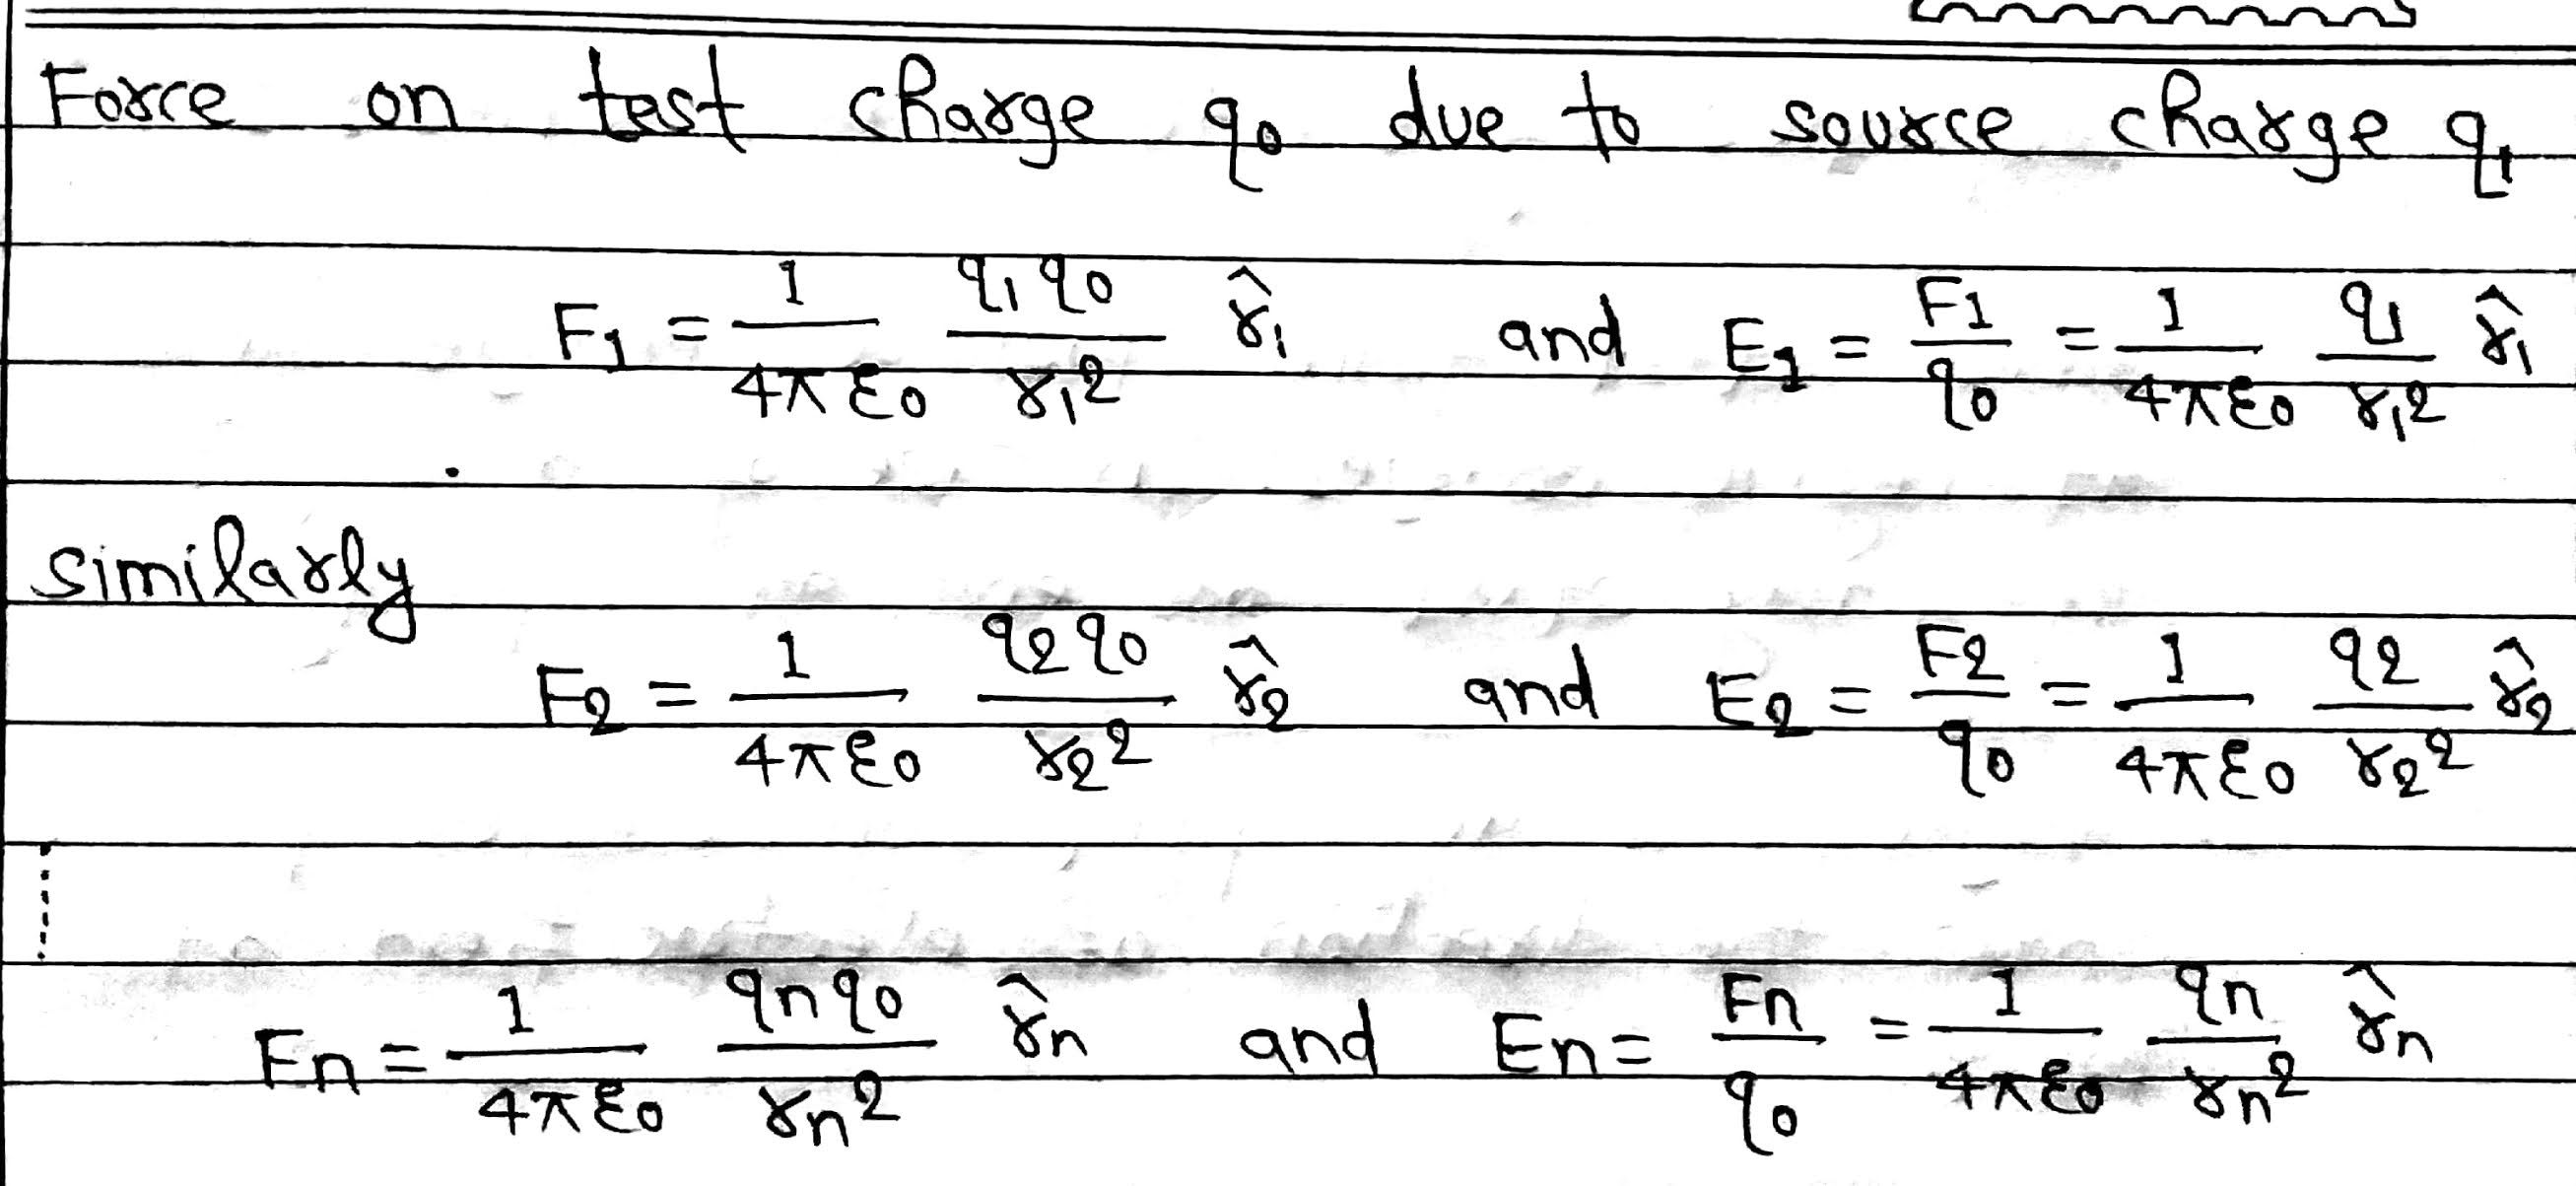 Force on test charge q₀ due to source charge q₁
F₁ = 1/4πε₀ q₁q₀/r₁² r̂₁ and E₁ = F₁/q₀ = 1/4πε₀ q₁/r₁² r̂₁
similarly
F₂ = 1/4πε₀ q₂q₀/r₂² r̂₂ and E₂ = F₂/q₀ = 1/4πε₀ q₂/r₂² r̂₂
Fn = 1/4πε₀ qnq₀/rn² r̂n and En = Fn/q₀ = 1/4πε₀ qn/rn² r̂n